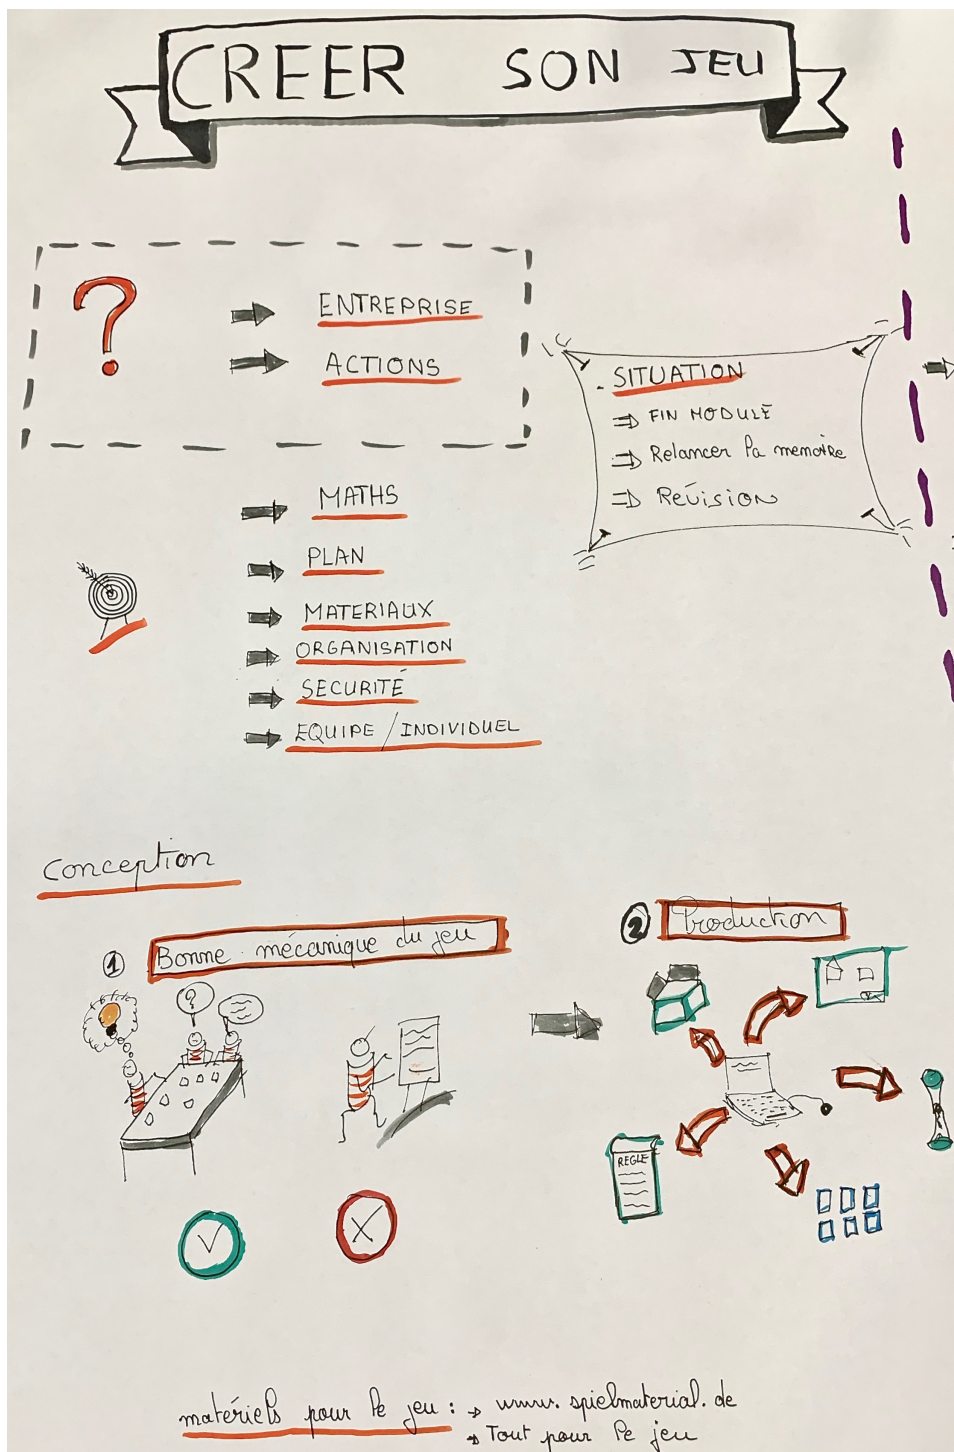 CREER SON JEU
?
ENTREPRISE
ACTIONS
- SITUATION
⇒ FIN MODULE
⇒ Relancer la memoire
⇒ Révision
MATHS
PLAN
MATERIAUX
ORGANISATION
SECURITÉ
EQUIPE / INDIVIDUEL
Conception
1 Bonne mécanique du jeu
?
2 Production
REGLE
matériels pour le jeu : → www.spielmaterial.de
→ Tout pour le jeu